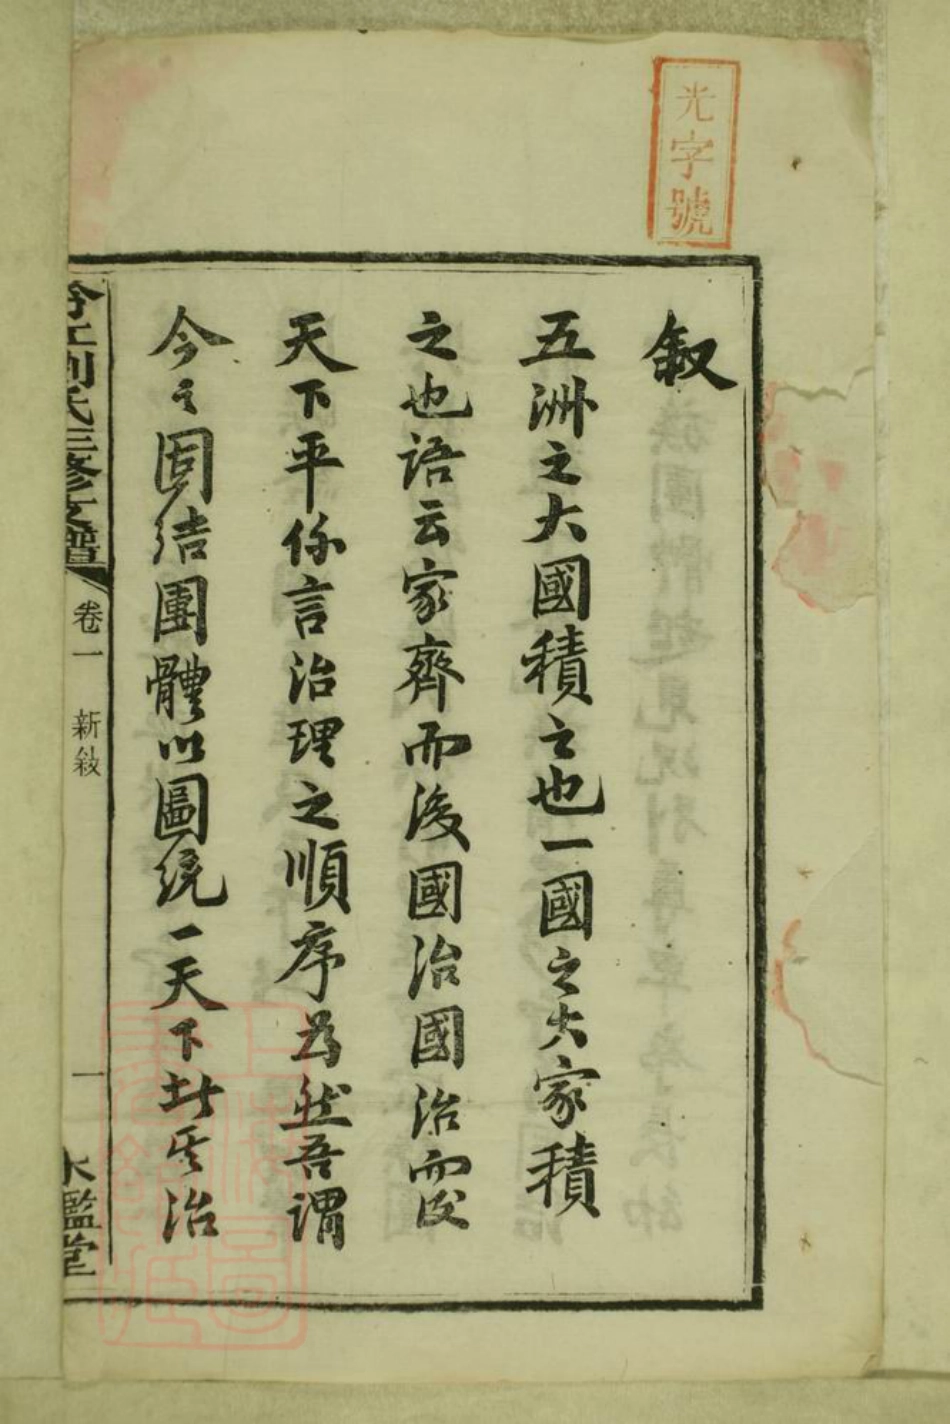 光字號
叙
五洲之大國積之也一國之大家積
之也語云家齊而後國治國治而後
天下平係言治理之順序為然吾謂
今之固結團體以圖統一天下者其治
劉氏三修支譜
卷一
新敍
一
水鑑堂